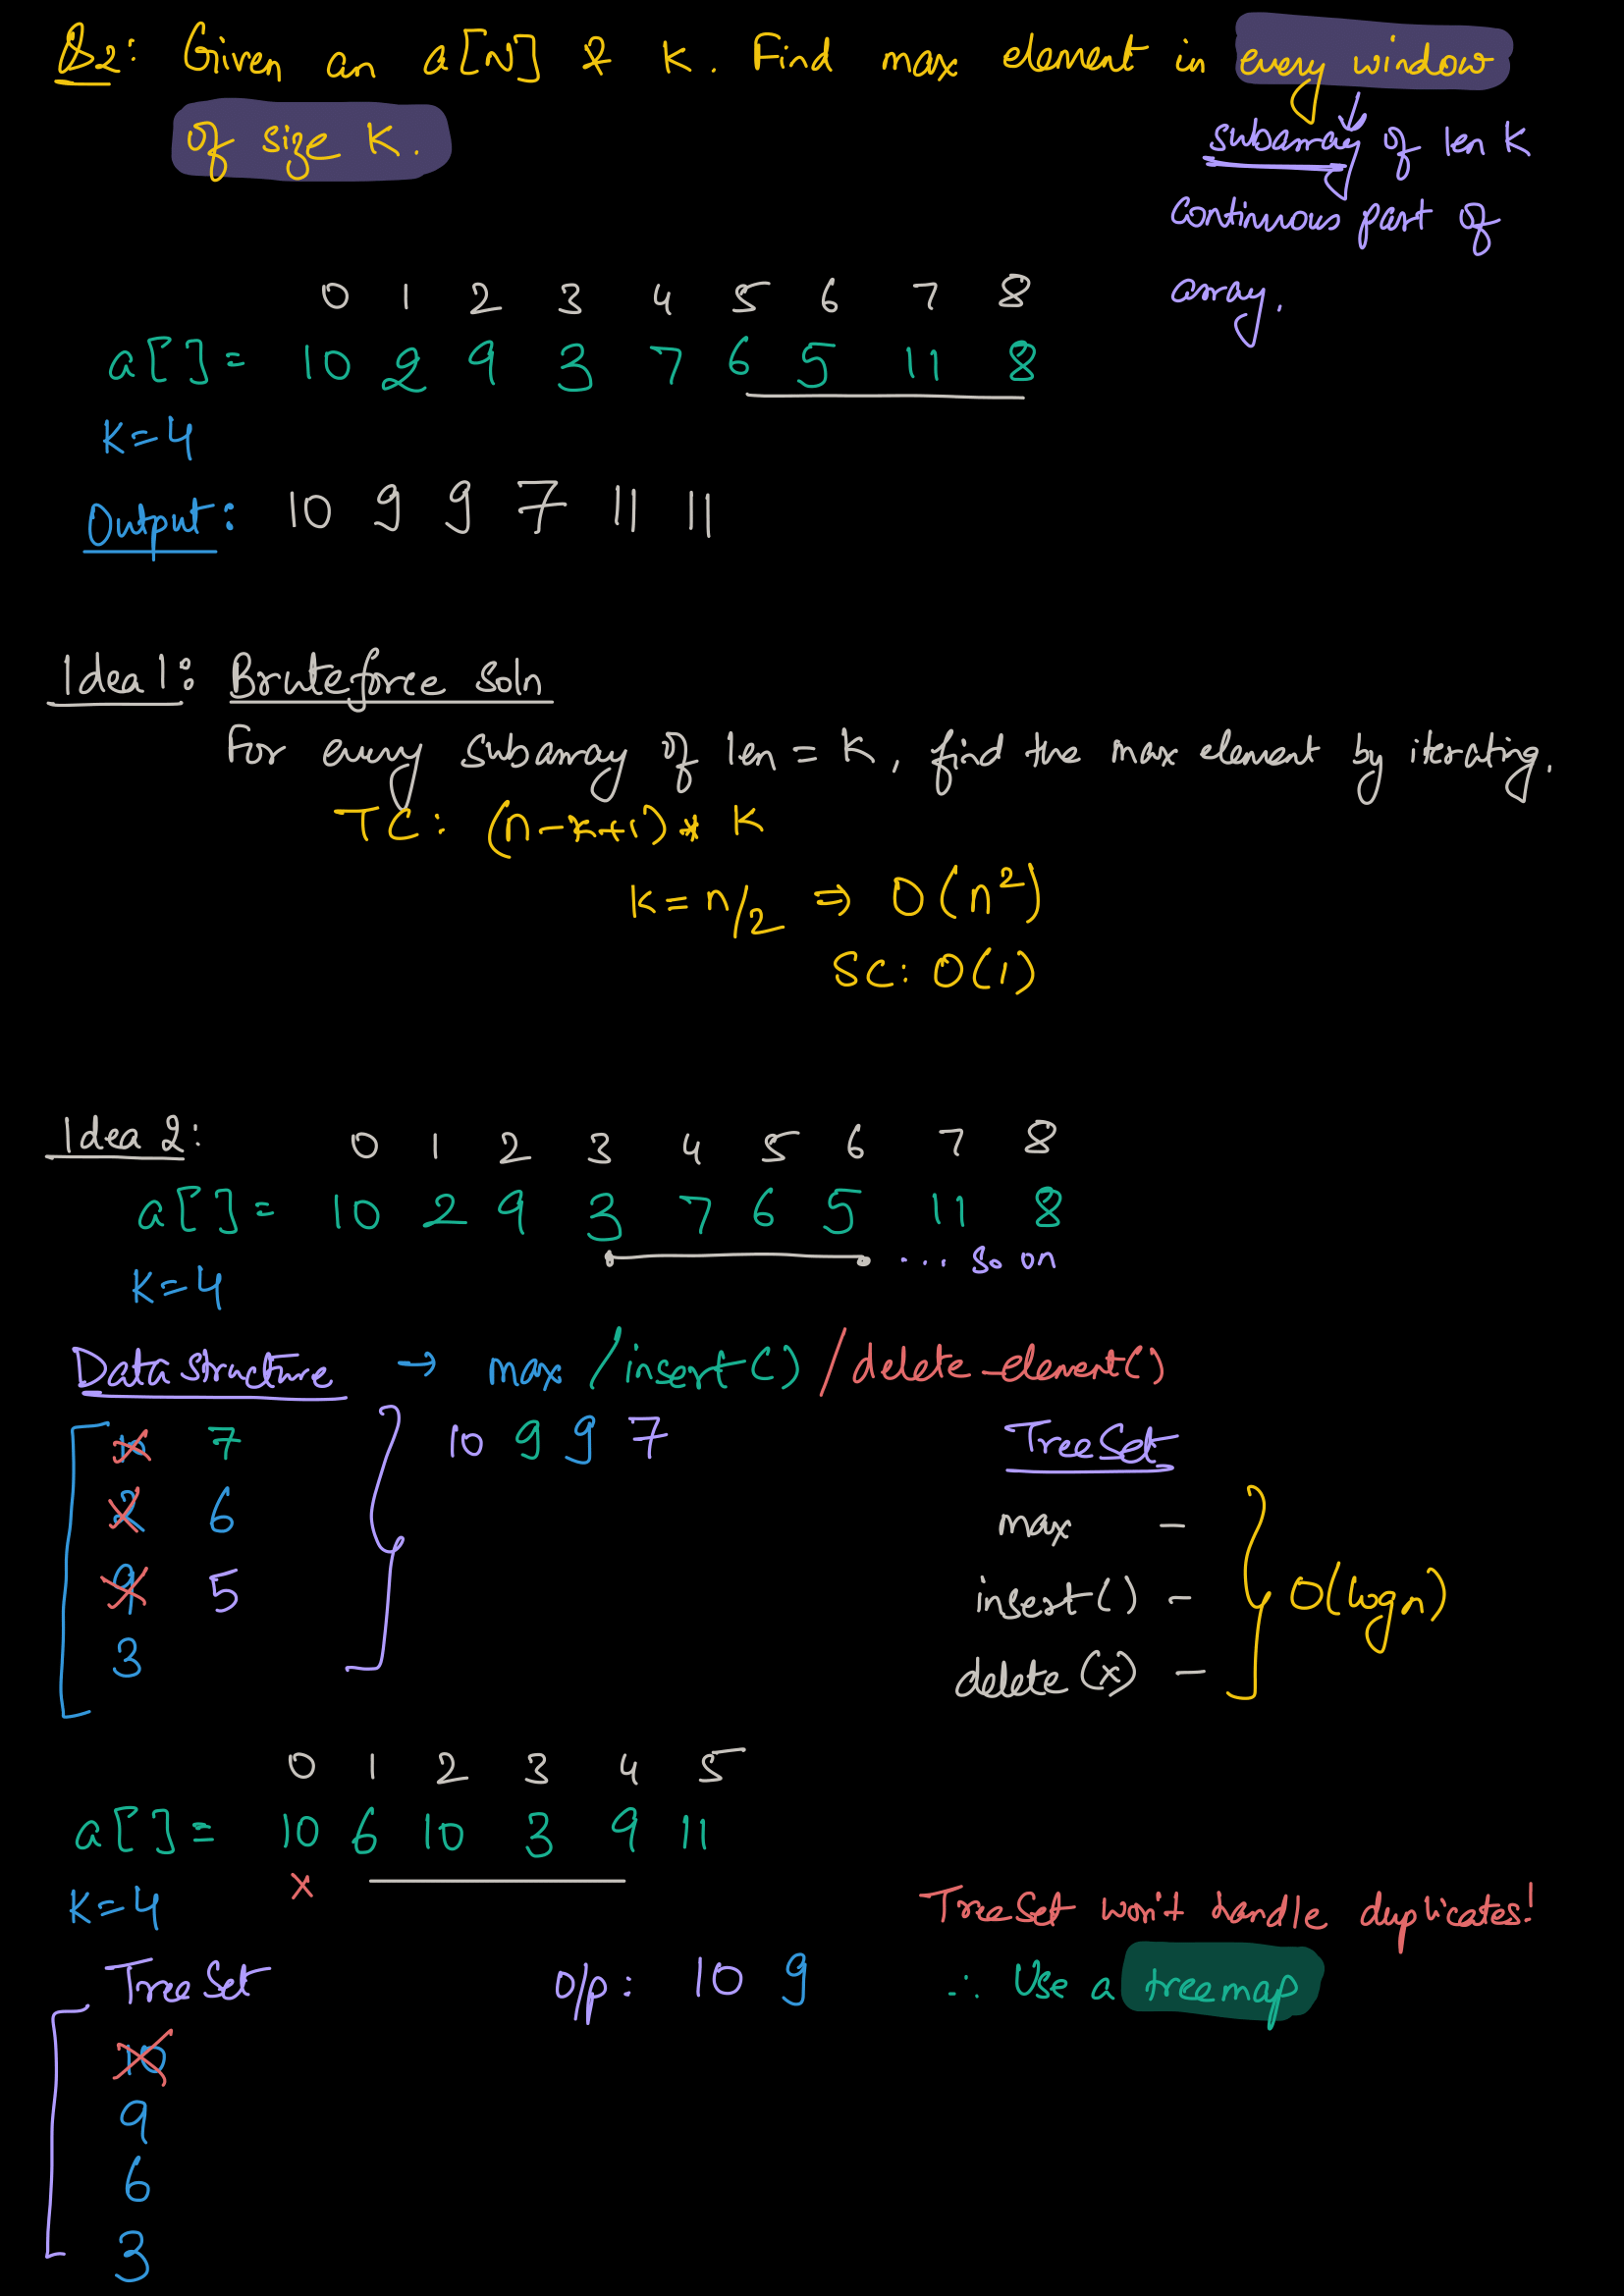 Q2: Given an a[N] & K. Find max element in every window
of size K.
subarray of len K
continuous part of
array.
0 1 2 3 4 5 6 7 8
a[ ] = 10 2 9 3 7 6 5 11 8
K=4
Output: 10 9 9 7 11 11
Idea 1: Bruteforce soln
For every subarray of len = K, find the max element by iterating.
TC: (n-k+1) * K
K = n/2 ⇒ O(n²)
SC: O(1)
Idea 2:
0 1 2 3 4 5 6 7 8
a[ ] = 10 2 9 3 7 6 5 11 8
... so on
K=4
Data structure → max /insert() /delete-element()
10 7
2 6
9 5
3
10 9 9 7
TreeSet
max -
insert() -
delete(x) -
O(logn)
0 1 2 3 4 5
a[ ] = 10 6 10 3 9 11
x
K=4
TreeSet won't handle duplicates!
TreeSet
o/p: 10 9
∴ Use a treemap
10
9
6
3